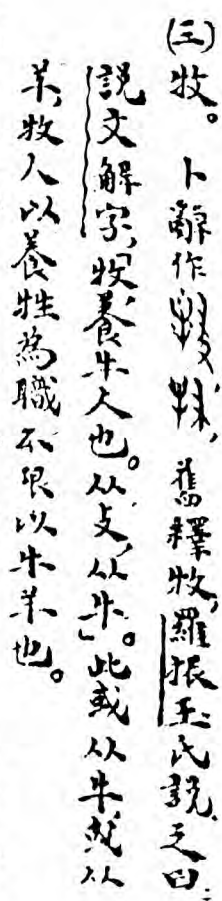 (三)牧。卜辭作,舊釋牧,羅振玉氏說之曰:
說文解字,「牧,養牛人也。从攴,从牛」。此或从牛或从
羊,牧人以養牲為職不限以牛羊也。